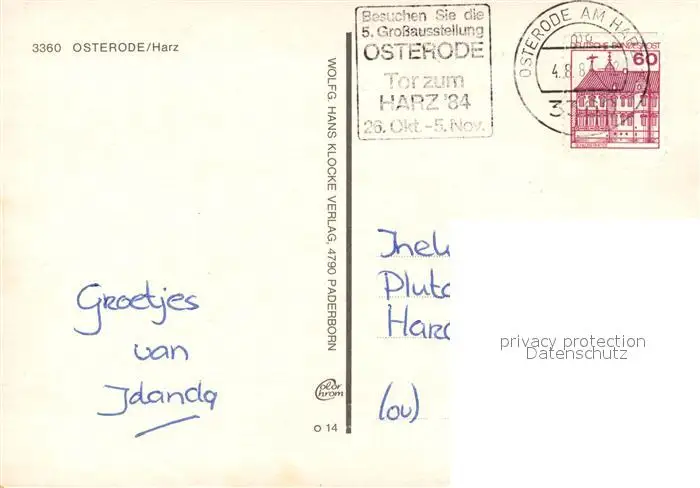 3360 OSTERODE/Harz
Besuchen Sie die
5. Großausstellung
OSTERODE
Tor zum
HARZ '84
26. Okt. - 5. Nov.
OSTERODE AM HARZ
4.8.8
DEUTSCHE BUNDESPOST
60
WOLFG. HANS KLOCKE VERLAG, 4790 PADERBORN
Groetjes
van
Jdanda
color
chrom
o 14
Jnek
Pluto
Hard
(ov)
privacy protection
Datenschutz